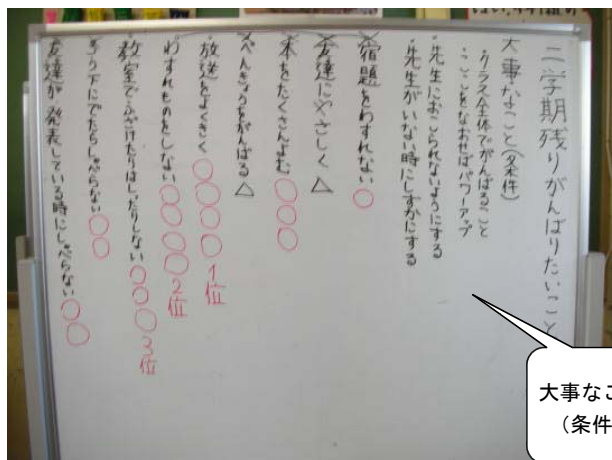 二学期残りがんばりたいこと
大事なこと(条件)
・クラス全体でがんばること
・ここをなおせばパワーアップ
・先生におこられないようにする
・先生がいない時にしずかにする
・宿題をわすれない○
・友達にやさしく△
・本をたくさんよむ○○○
・べんきょうをがんばる△
・放送をよくきく○○○○1位
わすれものをしない○○○○2位
・教室でふざけたりはしったりしない○○○3位
・ろう下にでたらしゃべらない○○
友達が発表している時にしゃべらない○○
大事なこ
(条件